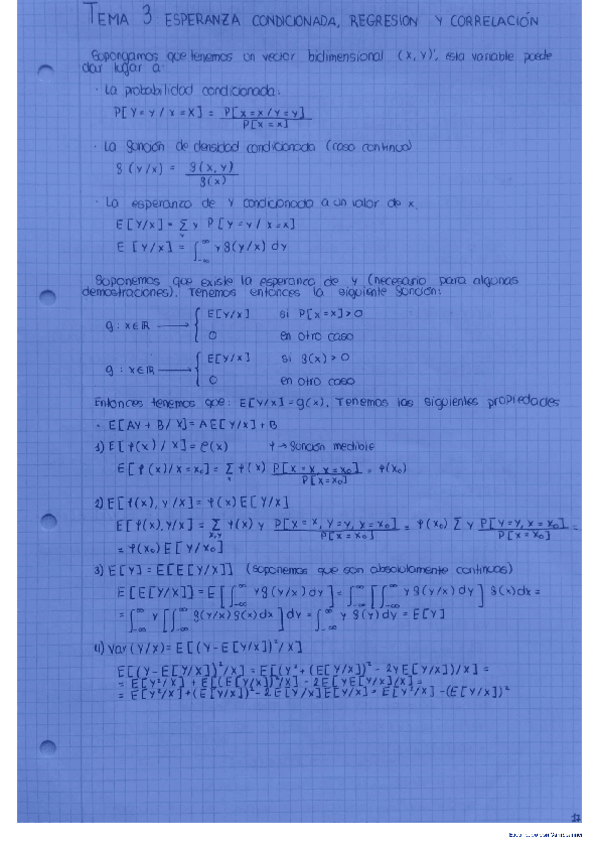 TEMA 3 ESPERANZA CONDICIONADA, REGRESION Y CORRELACIÓN
Supongamos que tenemos un vector bidimensional (X, Y)', esta variable puede
dar lugar a:
· La probabilidad condicionada.
P[Y=y / X=x] = P[X=x / Y=y] / P[X=x]
· La función de densidad condicionada (caso continuo)
f(y/x) = f(x, y) / f(x)
· La esperanza de Y condicionada a un valor de X.
E[Y/x] = Σ y P[Y=y / X=x]
E[Y/x] = ∫_{-∞}^{∞} y f(y/x) dy
Suponemos que existe la esperanza de Y (necesario para algunas
demostraciones). Tenemos entonces la siguiente función:
g: x∈ℝ ⟶ { E[Y/x] si P[X=x]>0
0 en otro caso
g: x∈ℝ ⟶ { E[Y/x] si f(x)>0
0 en otro caso
Entonces tenemos que: E[Y/x]=g(x). Tenemos las siguientes propiedades
· E[AY + B / X] = A E[Y/X] + B
1) E[φ(x) / X] = φ(x) φ → función medible
E[φ(x)/X=x₀] = Σ φ(x) P[X=x, X=x₀] / P[X=x₀] = φ(x₀)
2) E[φ(x), Y/X] = φ(x) E[Y/X]
E[φ(x), Y/X] = Σ_{x,y} φ(x) y P[X=x, Y=y, X=x₀] / P[X=x₀] = φ(x₀) Σ y P[Y=y, X=x₀] / P[X=x₀] =
= φ(x₀) E[Y/x₀]
3) E[Y] = E[E[Y/X]] (suponemos que son absolutamente continuas)
E[E[Y/X]] = E[∫_{-∞}^{∞} y f(y/x) dy] = ∫_{-∞}^{∞} [∫_{-∞}^{∞} y f(y/x) dy] f(x) dx =
= ∫_{-∞}^{∞} y [∫_{-∞}^{∞} f(y/x) f(x) dx] dy = ∫_{-∞}^{∞} y f(y) dy = E[Y]
4) Var(Y/X) = E[(Y - E[Y/X])² / X]
E[(Y - E[Y/X])² / X] = E[(Y² + (E[Y/X])² - 2Y E[Y/X]) / X] =
= E[Y²/X] + E[(E[Y/X])²/X] - 2E[Y E[Y/X]/X] =
= E[Y²/X] + (E[Y/X])² - 2 E[Y/X] E[Y/X] = E[Y²/X] - (E[Y/X])²